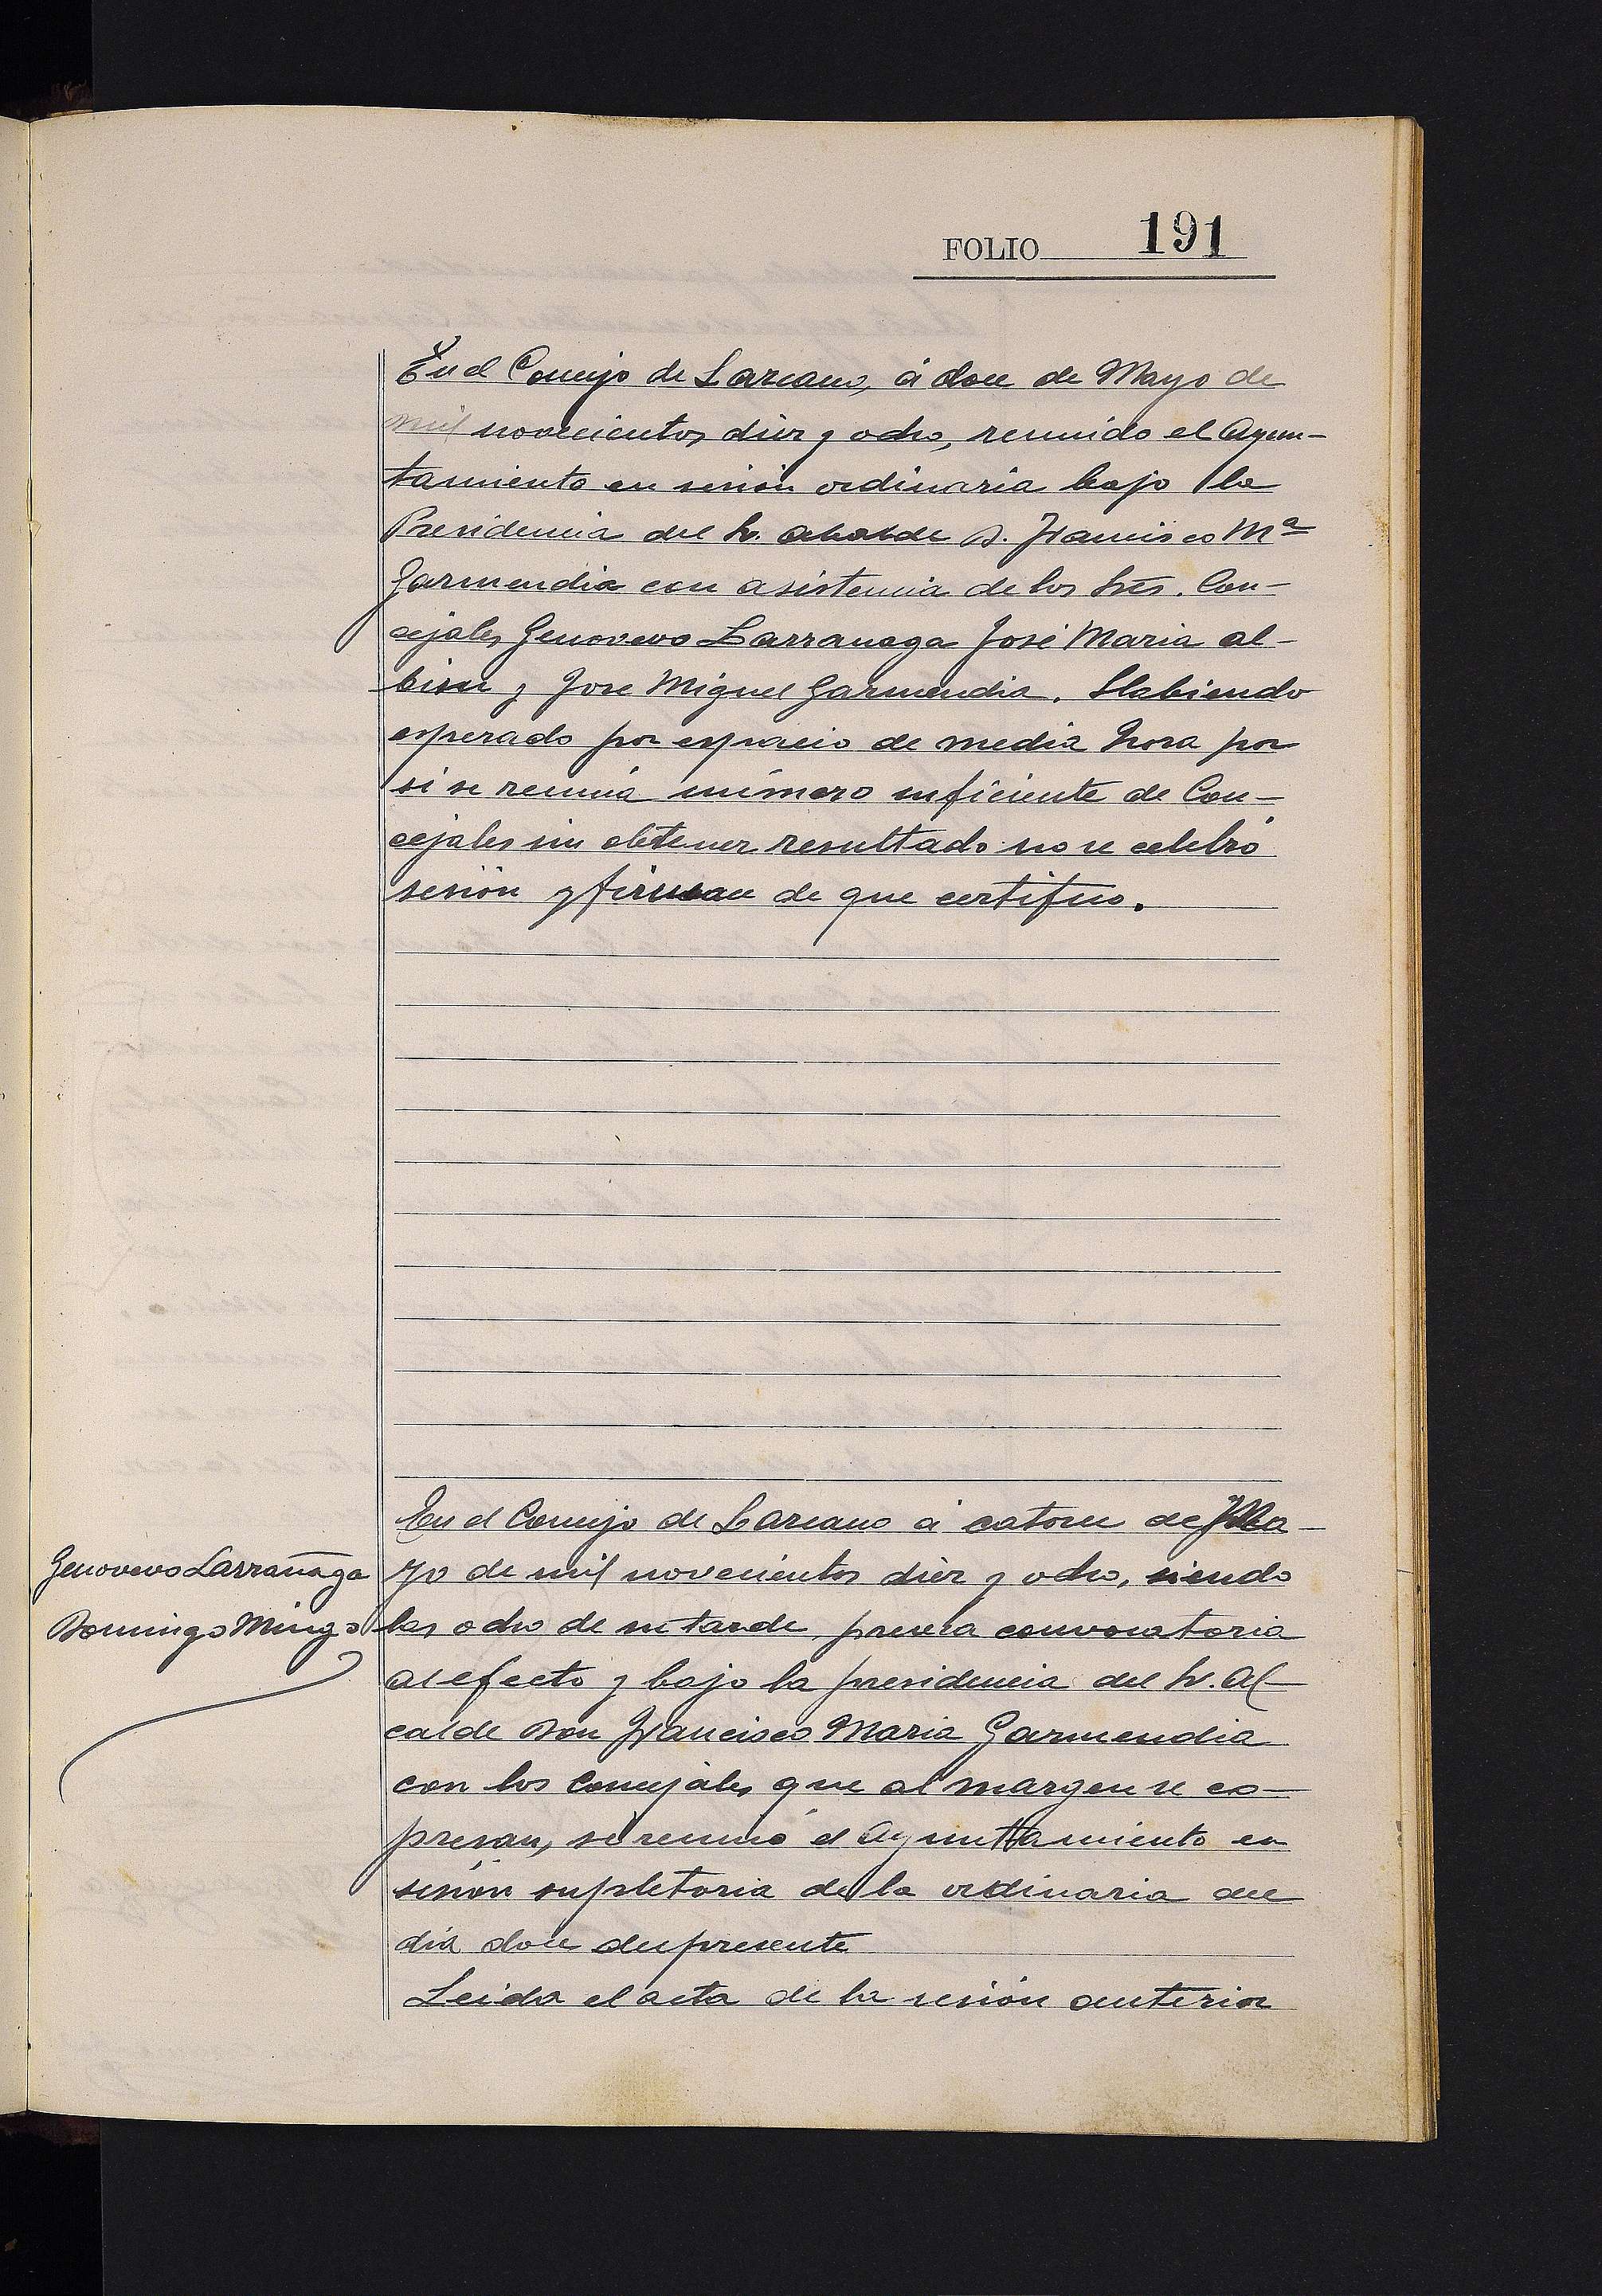 FOLIO 191
En el Concejo de Lazcano, á doce de Mayo de
mil novecientos diez y ocho, reunido el Ayun-
tamiento en sesión ordinaria bajo la
Presidencia del Sr. Alcalde D. Francisco Mª
Garmendia con asistencia de los Srés. Con-
cejales Genovevo Larrañaga José Maria Al-
bisu y Jose Miguel Garmendia. Habiendo
esperado por espacio de media hora por
si se reunia número suficiente de Con-
cejales sin obtener resultado no se celebró
sesión y firman de que certifico.
En el Concejo de Lazcano á catorce de Ma-
yo de mil novecientos diez y ocho, siendo
las ocho de su tarde, previa convocatoria
al efecto y bajo la presidencia del Sr. Al-
calde Don Francisco Maria Garmendia
con los Concejales que al margen se ex-
presan, se reunió el Ayuntamiento en
sesión supletoria de la ordinaria del
dia doce del presente
Leida el acta de la sesión anterior
Genovevo Larrañaga
Domingo Mingo